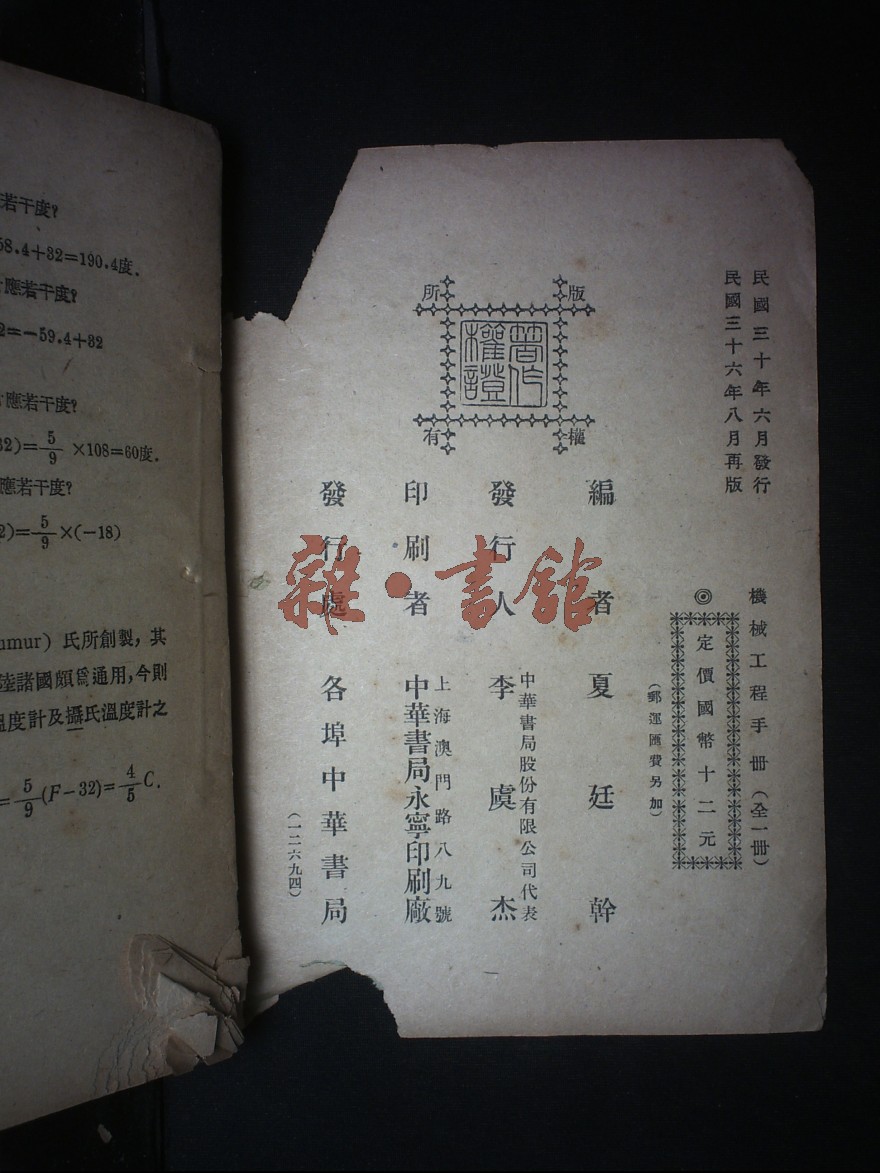 民國三十年六月發行
民國三十六年八月再版
機械工程手册(全一册)
◎定價國幣十二元
(郵運匯費另加)
版權所有
著作權證
編者 夏廷幹
發行人 李虞杰
中華書局股份有限公司代表
印刷者 中華書局永寧印刷廠
上海澳門路八九號
發行處 各埠中華書局
(一二六九四)
雜·書館
若干度?
58.4+32=190.4度.
應若干度?
2=-59.4+32
應若干度?
32)=5/9 ×108=60度.
應若干度?
2)=5/9×(-18)
umur) 氏所創製,其
陸諸國頗爲通用,今則
溫度計及攝氏溫度計之
=5/9(F-32)=4/5C.